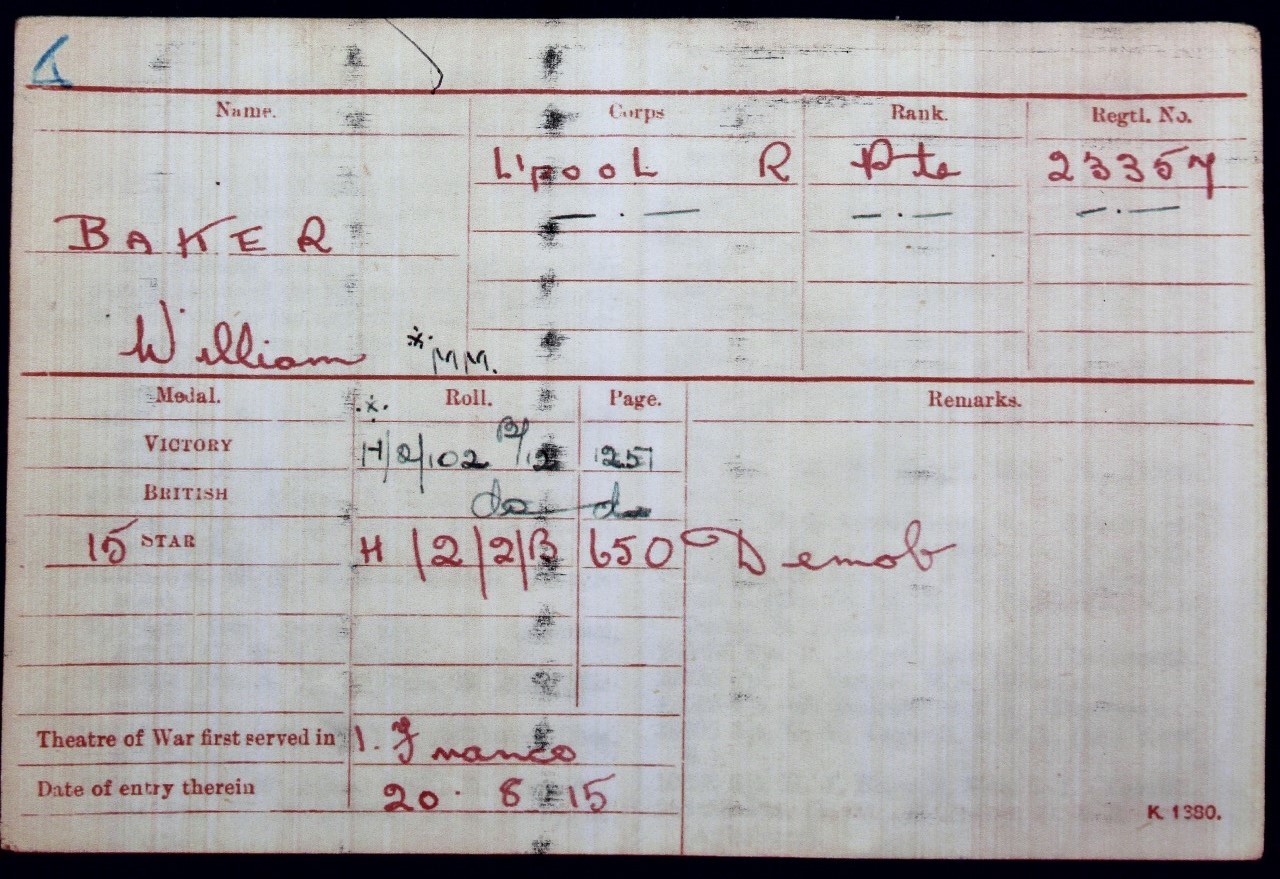 Name. Corps Rank. Regtl. No.
L'pool R Pte 23357
— . — — . — — . —
BAKER
William * MM.
Medal. * Roll. Page. Remarks.
VICTORY H/2/102 B/12 1251
BRITISH do do
15 STAR H/2/2/B 650 Demob
Theatre of War first served in 1. France
Date of entry therein 20. 8. 15
K 1380.